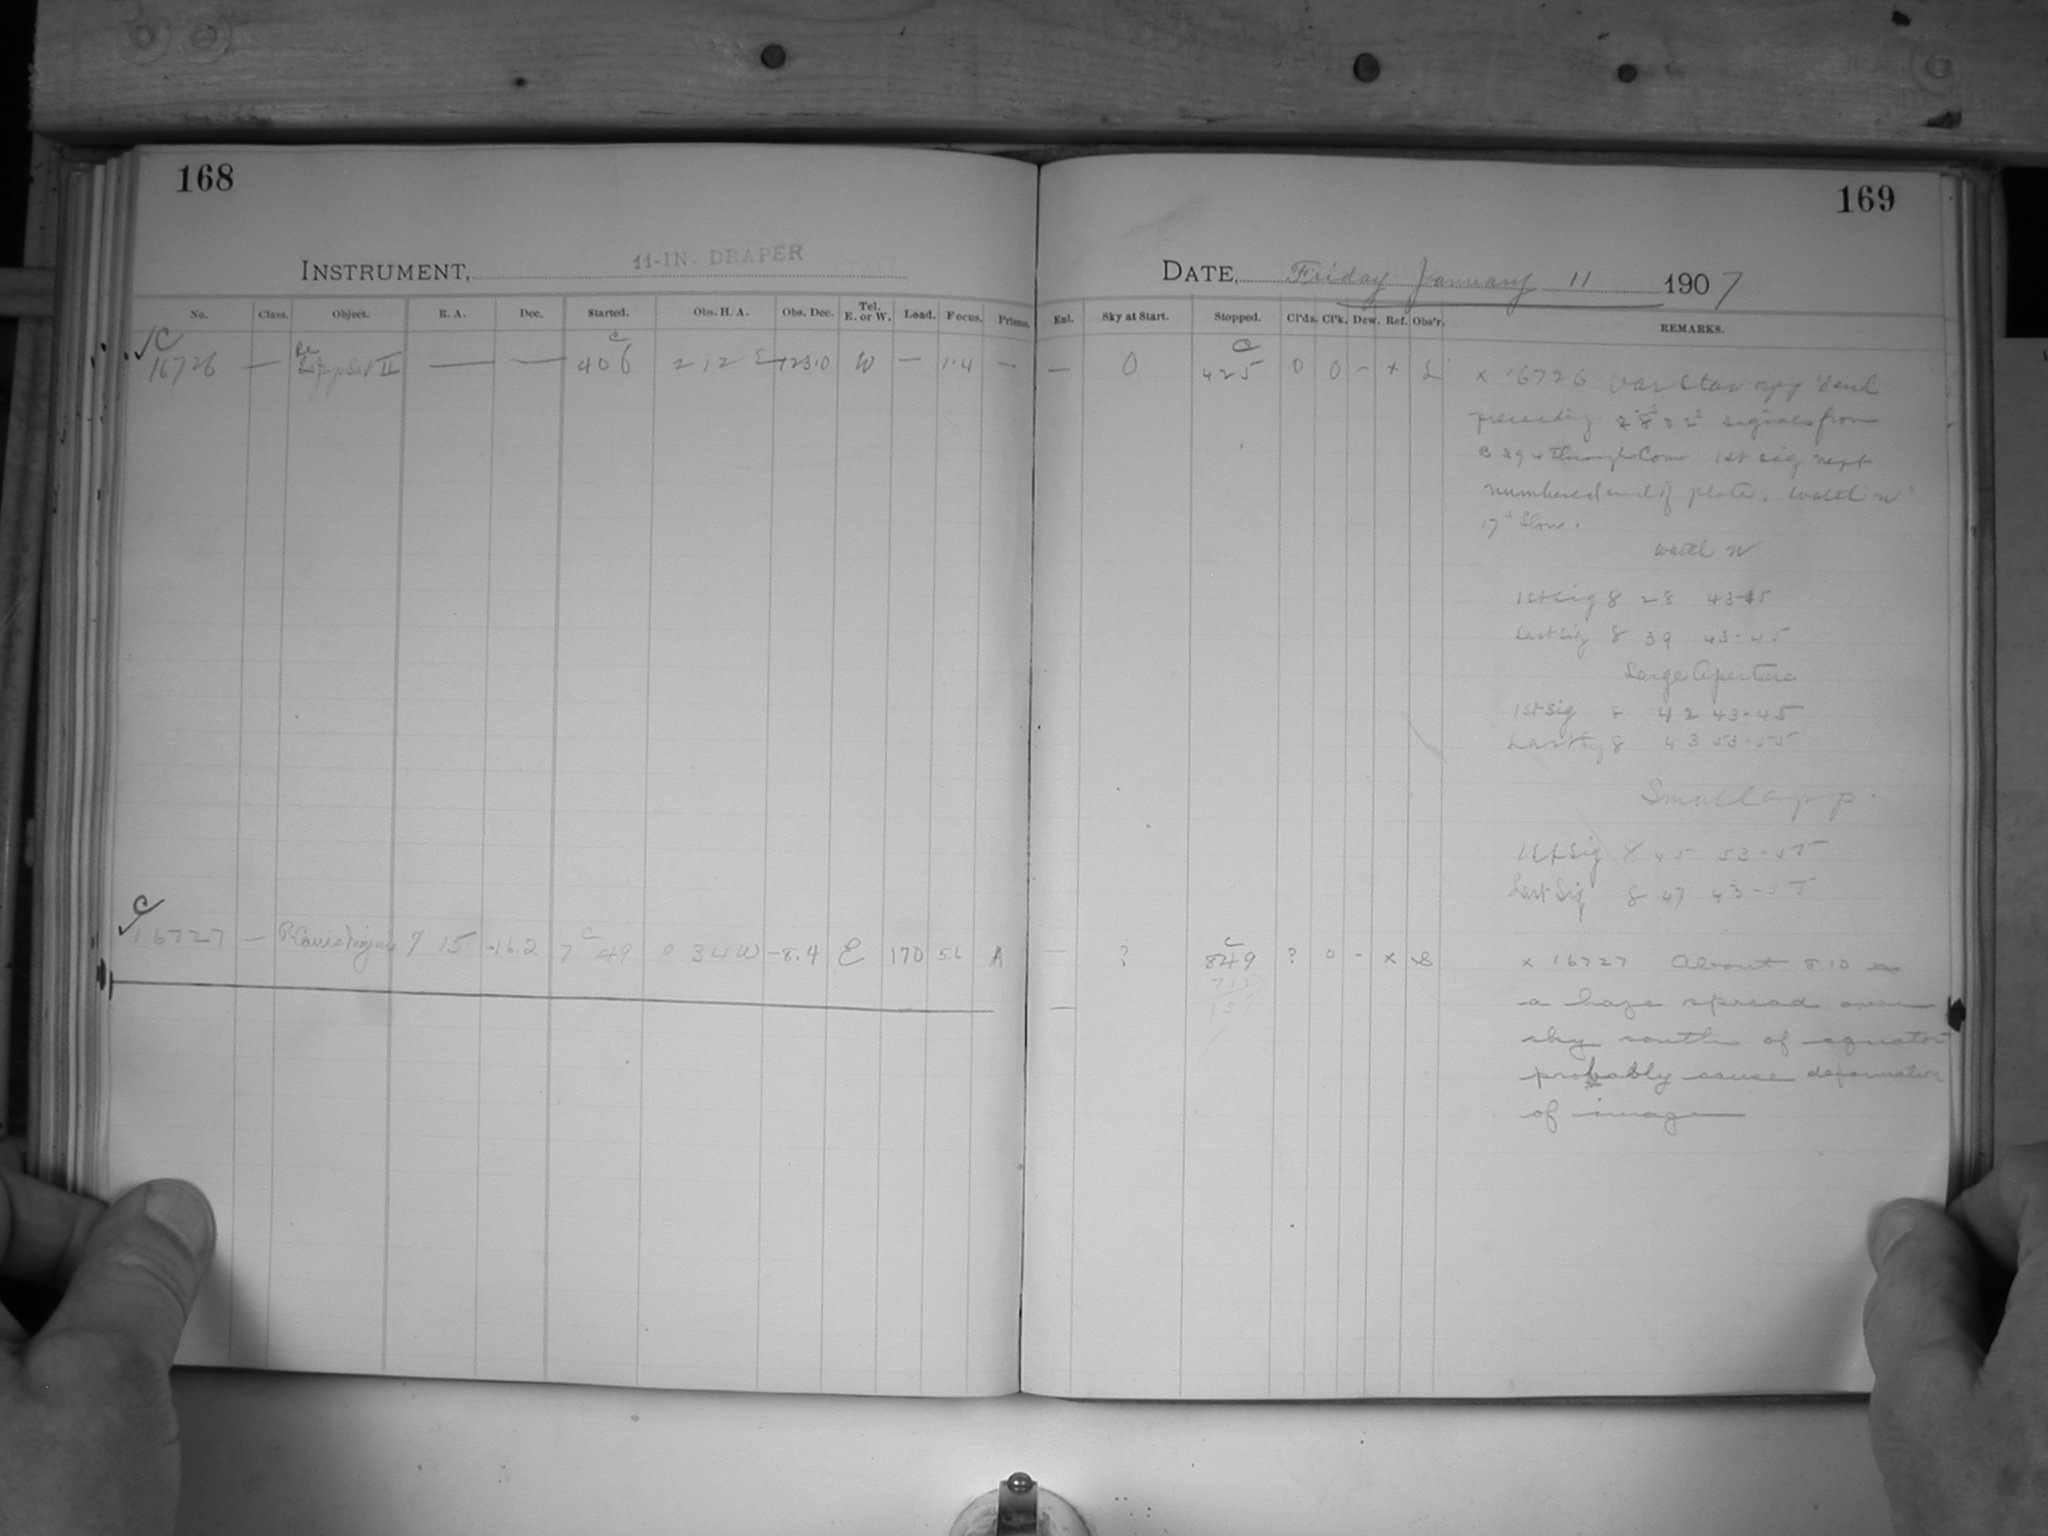 168
169
INSTRUMENT, 11-IN. DRAPER
DATE, Friday January 11 1907
No. Class. Object. R. A. Dec. Started. Obs. H. A. Obs. Dec. Tel. E. or W. Load. Focus. Prisms. Enl. Sky at Start. Stopped. Cl'ds. Cl'k. Dew. Ref. Obs'r. REMARKS.
C
16726 — II — — 4 06 2 12 E +23.0 W — 1.4 — — 0 4 25 0 0 - x
x 16726 Var Star app
preceding signals from
B 394 through Com 1st sig next
numbered end of plate. watch W
17s slow.
watch W
1st sig 8 28 43-45
Last sig 8 39 43-45
Large Aperture
1st sig 8 42 43-45
Last sig 8 43 53-55
Small
1st sig 8 45 53-55
Last Sig 8 47 43-
C
16727 — 7 15 -16.2 7 49 0 34 W -8.4 E 170 A — ? 849 ? 0 - x
715
x 16727 About 8.10
a haze spread over
sky south of equator
probably cause deformation
of image